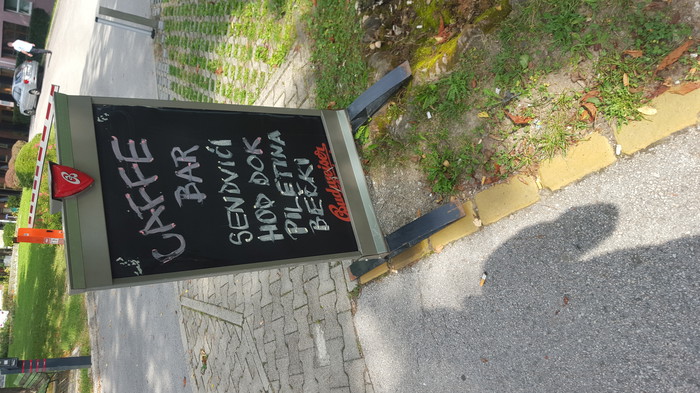 CAFFE
BAR
SENDVIČI
HOD DOK
PILETINA
BEKRI
Budweiser